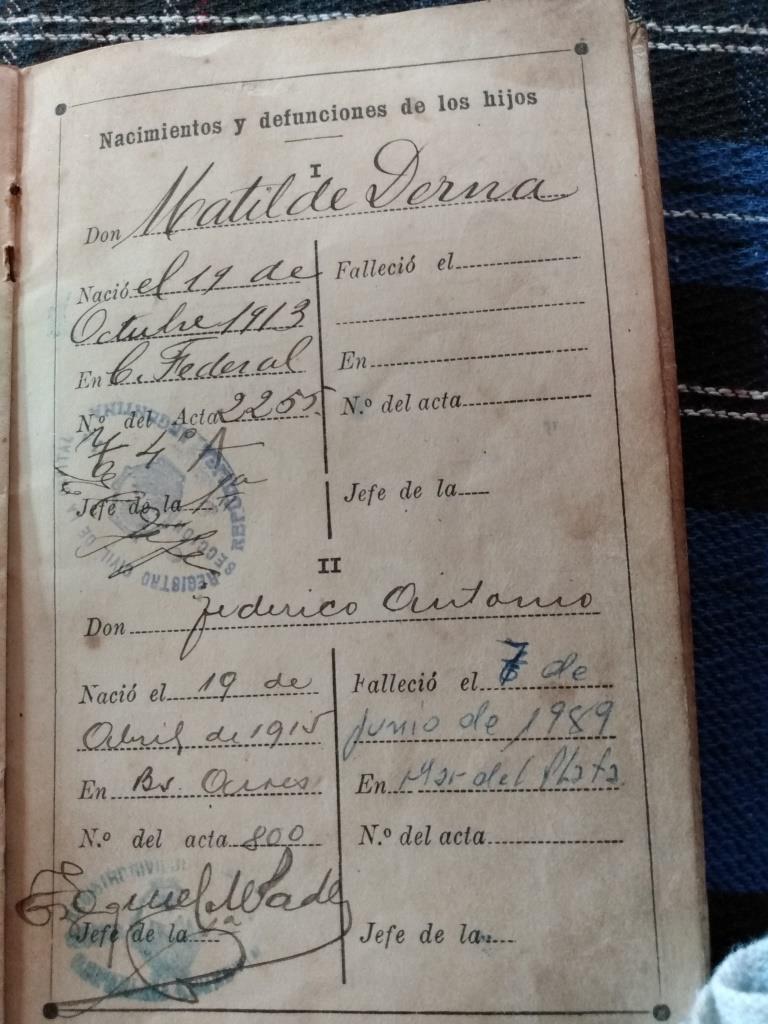 Nacimientos y defunciones de los hijos
I
Don Matilde Derna
Nació el 19 de
Octubre 1913
En C. Federal
N.º del Acta 2255
T 4º A
Jefe de la 1ª
Falleció el
En
N.º del acta
Jefe de la
REGISTRO CIVIL DE LA CAPITAL
REPÚBLICA ARGENTINA
SECCIÓN
II
Don Federico Antonio
Nació el 19 de
Abril de 1915
En Bs. Aires
N.º del acta 800
Jefe de la 1ª
Falleció el 7 de
Junio de 1989
En Mar del Plata
N.º del acta
Jefe de la